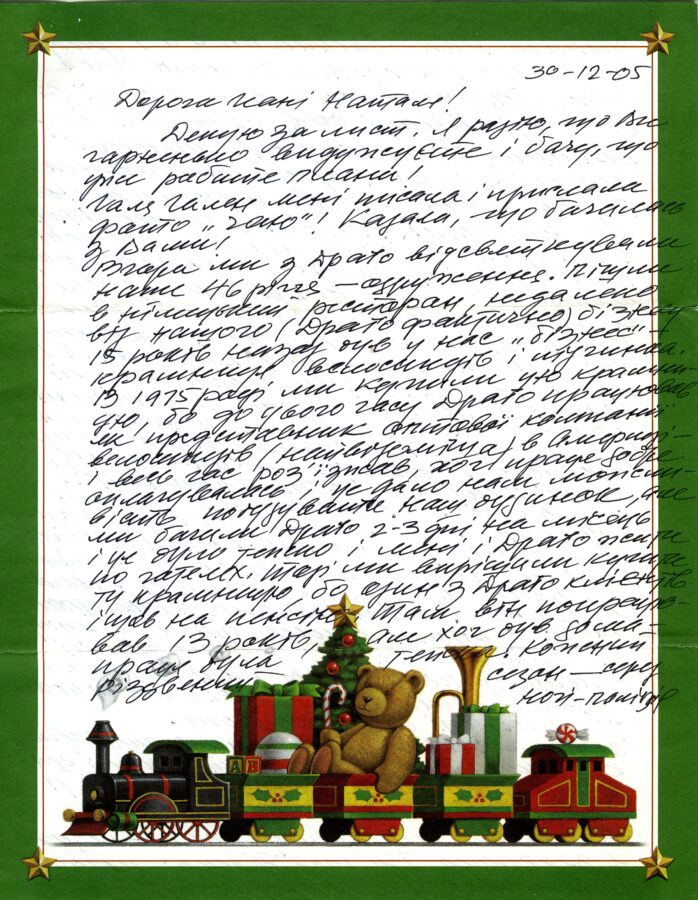 30-12-05
Дорога Пані Наталя!
Дякую за лист. Я радію, що Ви
гарненько видужуєте і бачу, що
уже робите плани!
Галя Гален мені писала і прислала
фото „Чаю"! Казала, що бачилась
з Вами!
Вчора ми з Драго відсвяткували
наше 46 річчя – одруження. Пішли
в німецький ресторан, недалеко
від нашого (Драго фактично) бізнесу
15 років назад був у нас „бізнес" –
крамниця велосипедів і
В 1975 році ми купили цю крамни-
цю, бо до цього часу Драго працював
як представник оптової компанії
велосипедів (найбільша) в Америці –
і весь час роз'їзжав, хоч праця добре
оплачувалась і це дало нам можли-
вість побудувати наш будинок, але
ми бачили Драго 2-3 дні на місяць
і це було тяжко і мені і Драго жити
по готелях. Тоді ми вирішили купити
ту крамницю, бо один з Драго клієнтів
ішов на пенсію. Там він попрацю-
вав 13 років, але хоч був дома –
праця була тяжка. Кожний
різдвяний сезон – се
ной-
A B